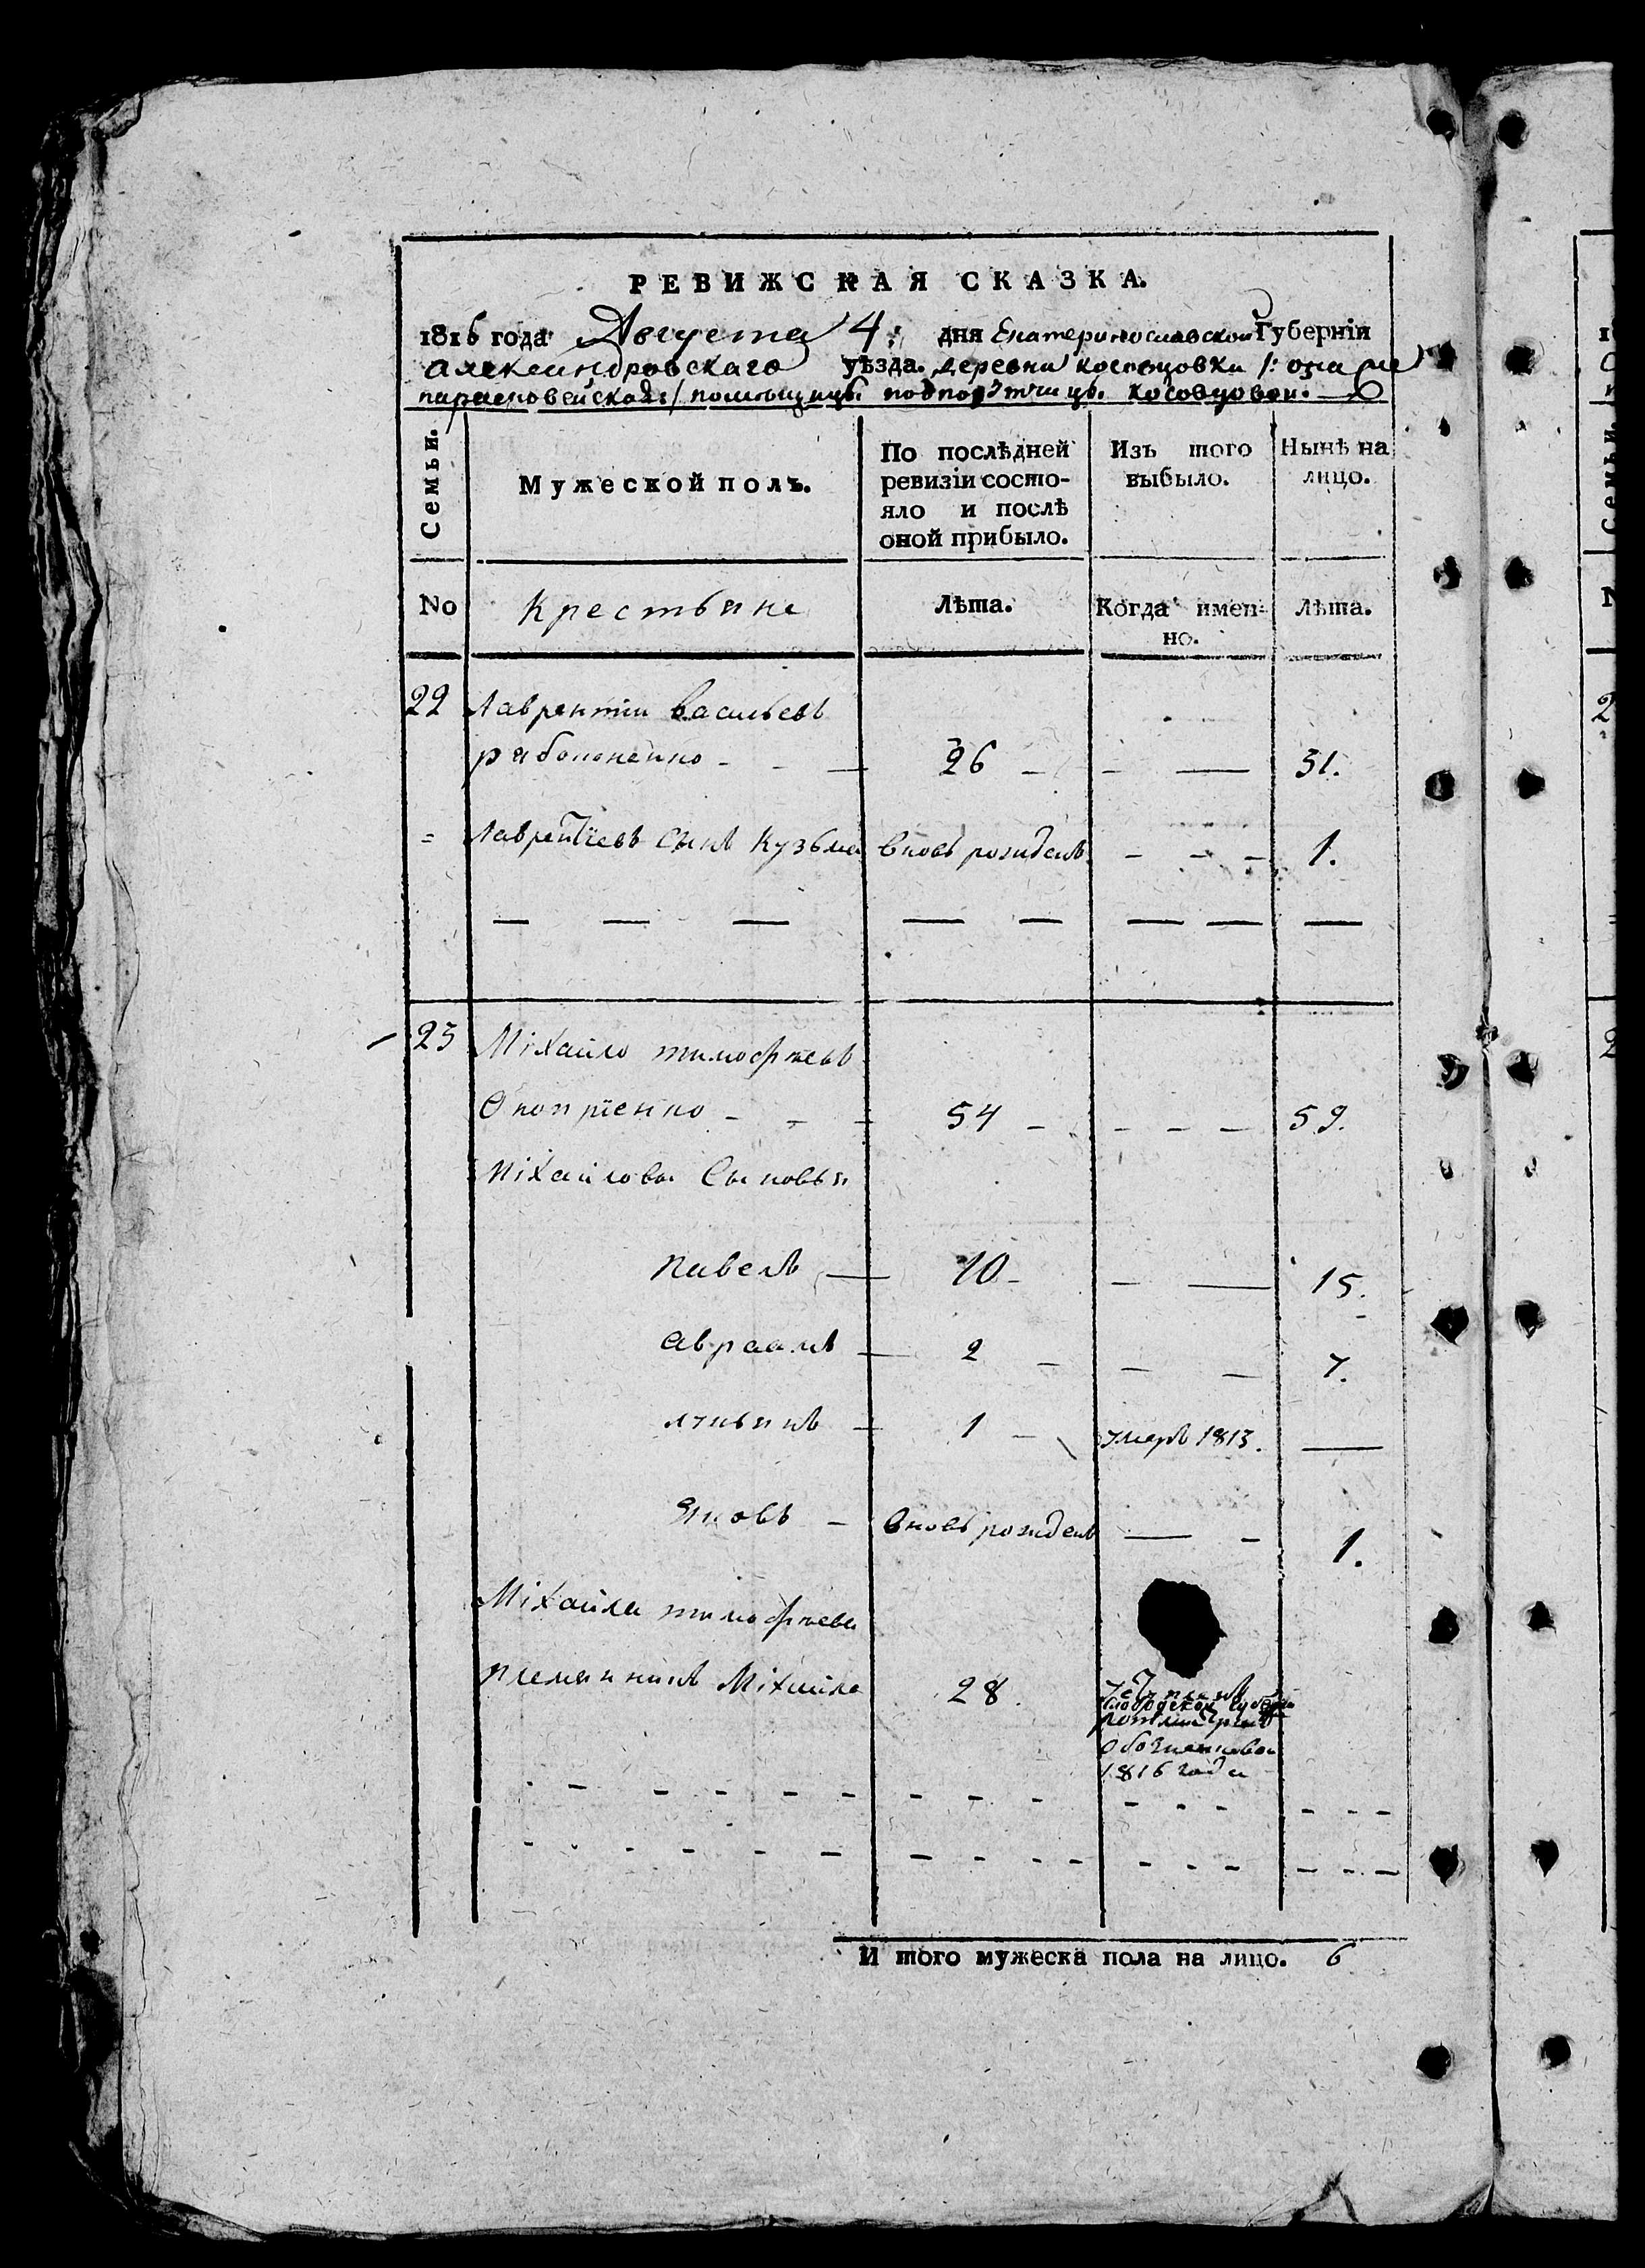 РЕВИЖСКАЯ СКАЗКА.
1816 года Августа 4: дня Екатеринославской Губерніи
александровскаго уѣзда. деревни косовцовки /: она же
парасковейская:/ помѣщицы подпорутчицы Косовцовой.
Семьи.
Мужеской полъ.
По послѣдней ревизіи состо-
яло и послѣ
оной прибыло.
Изъ того
выбыло.
Нынѣ на
лицо.
No
Крестьяне
Лѣта.
Когда имен-
но.
Лѣта.
22 Лаврентіи васильевъ
рябоконенко 26 31.
= Лаврентіевъ сынъ Кузьма вновь рожденъ 1.
23 Міхайло тимофѣевъ
54 59.
Міхайловы Сыновья
павелъ 10 15.
авраамъ 2 7.
лукьянъ 1 умеръ 1813.
Яковъ вновь рожденъ 1.
Міхайла тимофѣева
племянникъ Міхайло 28.
1816 года
И того мужеска пола на лицо. 6